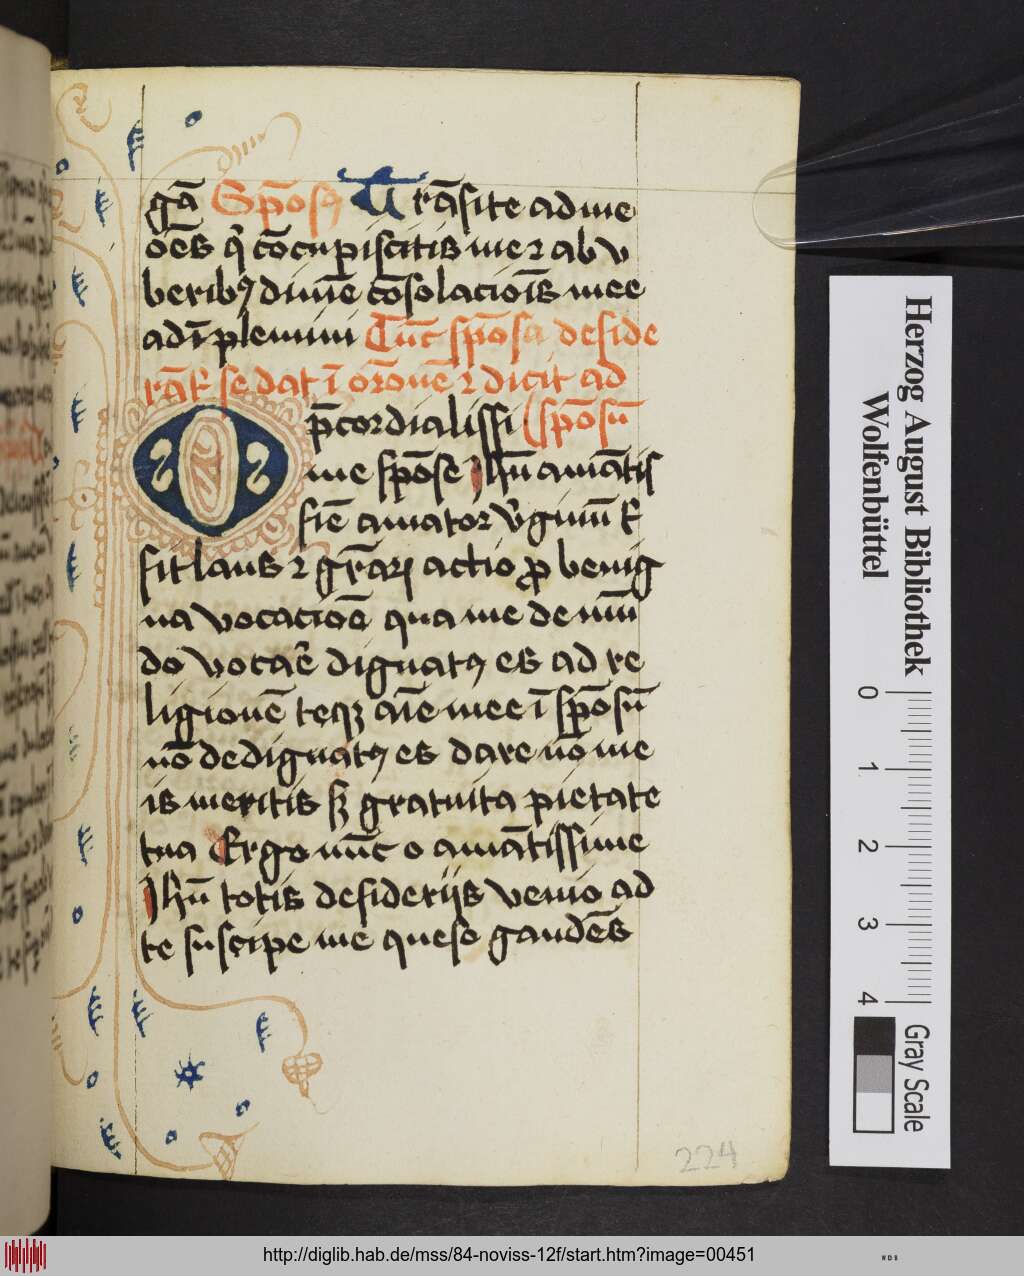 gā Spōsꝰ Trāsite ad me
oēs q̇ cōcupiscitis me ⁊ ab v
beribꝰ diuīe cōsolacioīs mee
adīplemini Tūc spōsa deside
rāt̄ se dat ī orōnē ⁊ dicit ad
p̄cordialissi (spōsū
me spōse Jhū amātis
siē amator v̇ginū t̄
sit laus ⁊ gr̄aꝝ actio ꝓ benig
na vocacioē qua me de mū
do vocar̄e dignatꝰ es ad re
ligionē teqꝫ aīe mee ī spōsū
nō dedignatꝰ es dare nō me
is meritis sꝫ gratuita pietate
tua Ergo nūc o amātissime
Jhū totis desiderijs venio ad
te suscipe me queso gaudēs
224
Herzog August Bibliothek
Wolfenbüttel
0 1 2 3 4
Gray Scale
http://diglib.hab.de/mss/84-noviss-12f/start.htm?image=00451